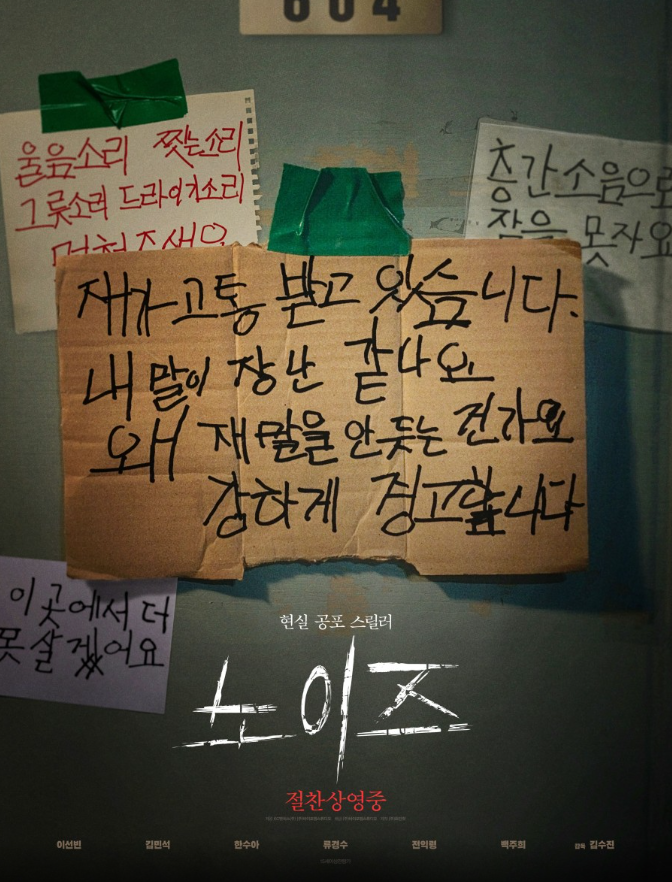 604
울음소리 찢는소리
그릇소리 드라이기소리
멈춰주세요
층간소음으로
잠을 못자요
재가 고통 받고 있습니다.
내 말이 장난 같나요
왜 재 말을 안듣는 건가요
강하게 경고합니다
이곳에서 더
못살겠어요
현실 공포 스릴러
노이즈
절찬상영중
이선빈 김민석 한수아 류경수 전익령 백주희 감독 김수진